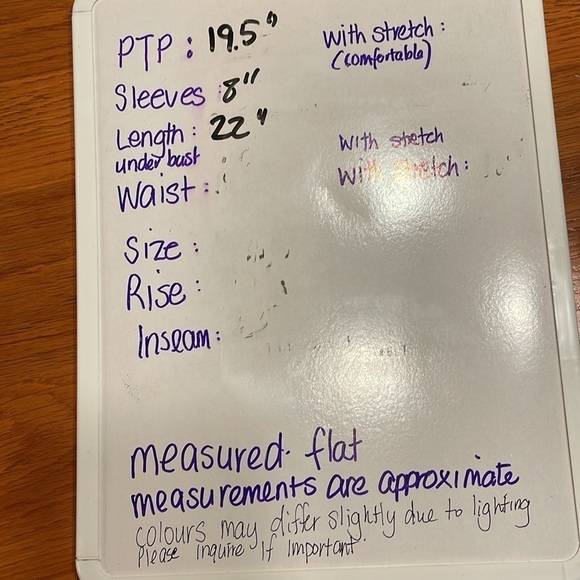 PTP : 19.5"
With stretch :
(comfortable)
Sleeves : 8"
Length : 22"
under bust
With stretch
Waist :
With stretch :
Size :
Rise :
Inseam :
measured flat
measurements are approximate
colours may differ slightly due to lighting
Please inquire if important